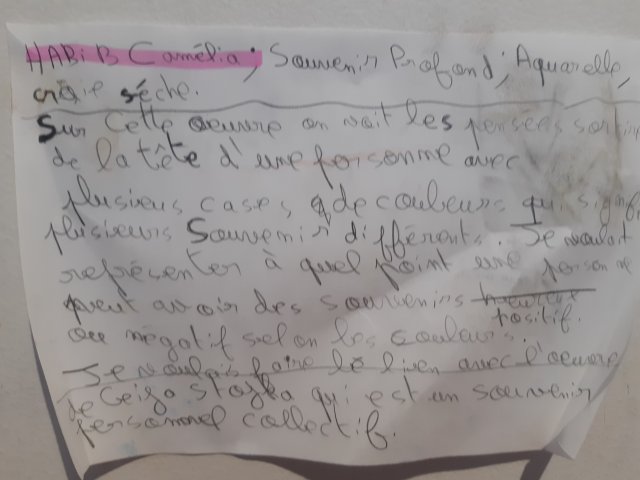 HABiB Camélia; Souvenir Profond; Aquarelle,
craie sèche.
Sur cette oeuvre on voit les pensées sortir
de la tête d'une personne avec
plusieurs cases de couleurs qui signif
plusieurs Souvenir différents. Je voulait
représenter à quel point une personne
peut avoir des souvenirs heureux
positif.
ou négatif selon les couleurs.
Je voulais faire le lien avec l'oeuvre
de Ceija Stojka qui est un souvenir
personnel collectif.